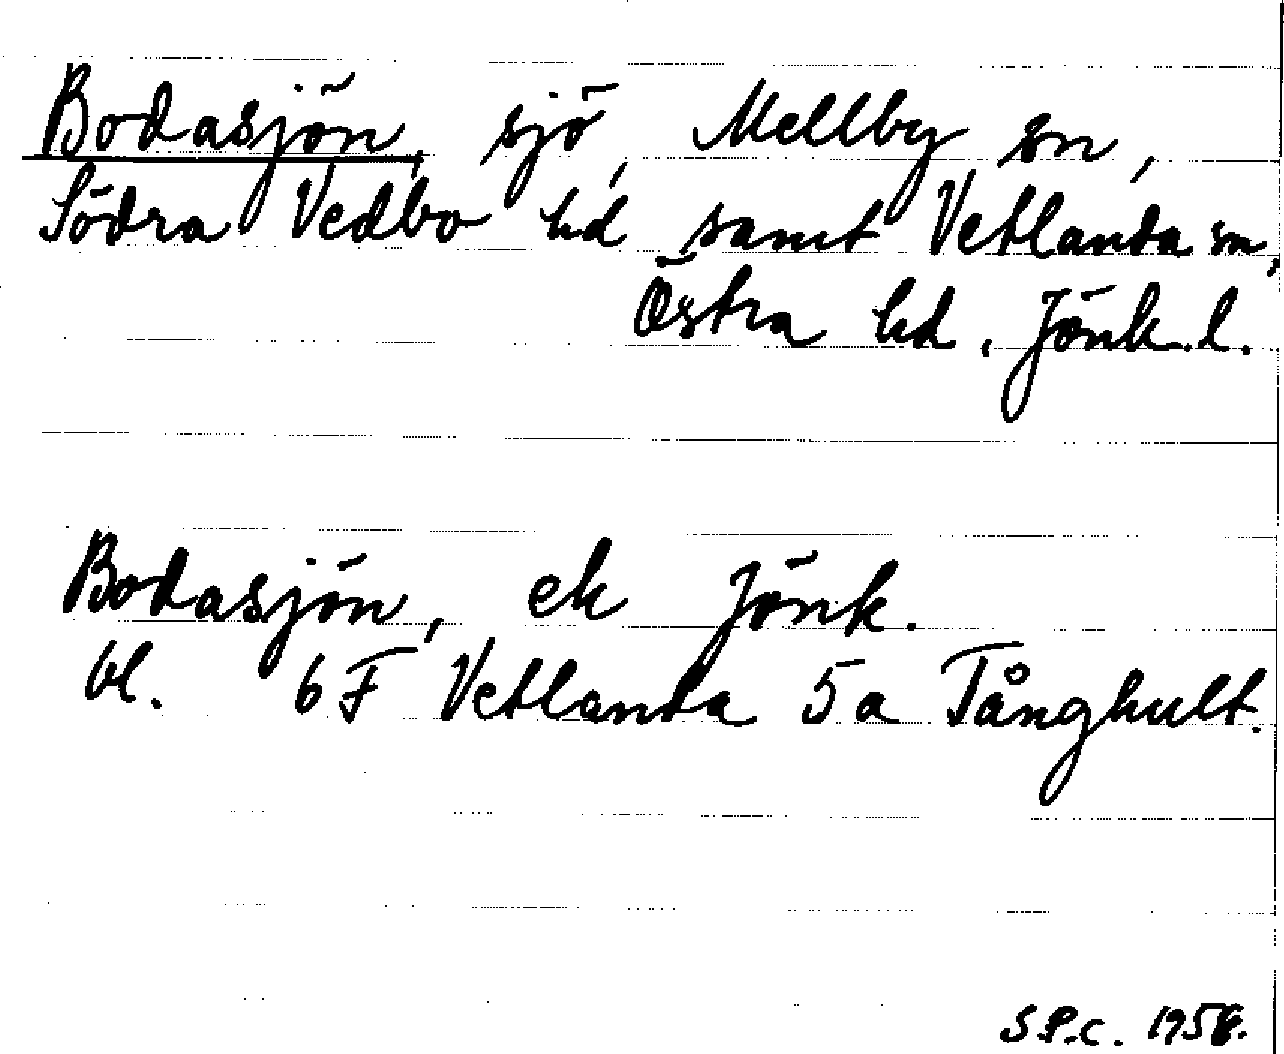 Bodasjön, sjö, Mellby sn,
Södra Vedbo hd samt Vetlanda sn,
Östra hd, Jönk.l.
Bodasjön, ek Jönk.
bl. 6F Vetlanda 5a Tånghult.
S.P.c.